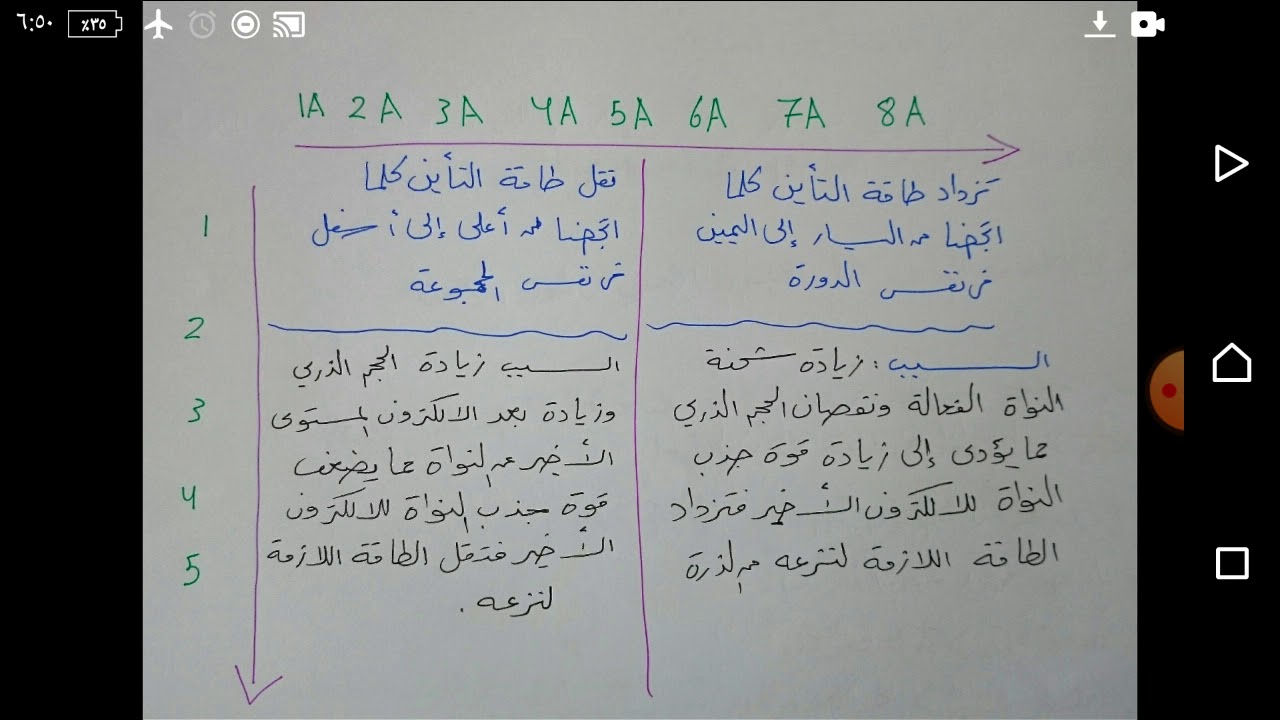 ٦:٥٠ ٪٣٥
1A 2A 3A 4A 5A 6A 7A 8A
تزداد طاقة التأين كلما
اتجهنا من اليسار إلى اليمين
في نفس الدورة
السبب : زيادة شحنة
النواة الفعالة ونقصان الحجم الذري
مما يؤدى إلى زيادة قوة جذب
النواة للالكترون الأخير فتزداد
الطاقة اللازمة لنتزعه من الذرة
تقل طاقة التأين كلما
اتجهنا من أعلى إلى أسفل
في نفس المجموعة
السبب زيادة الحجم الذري
وزيادة بعد الالكترون لمستوى
الأخير عن النواة مما يضعف
قوة جذب النواة للالكترون
الأخير فتقل الطاقة اللازمة
لنزعه .
1
2
3
4
5